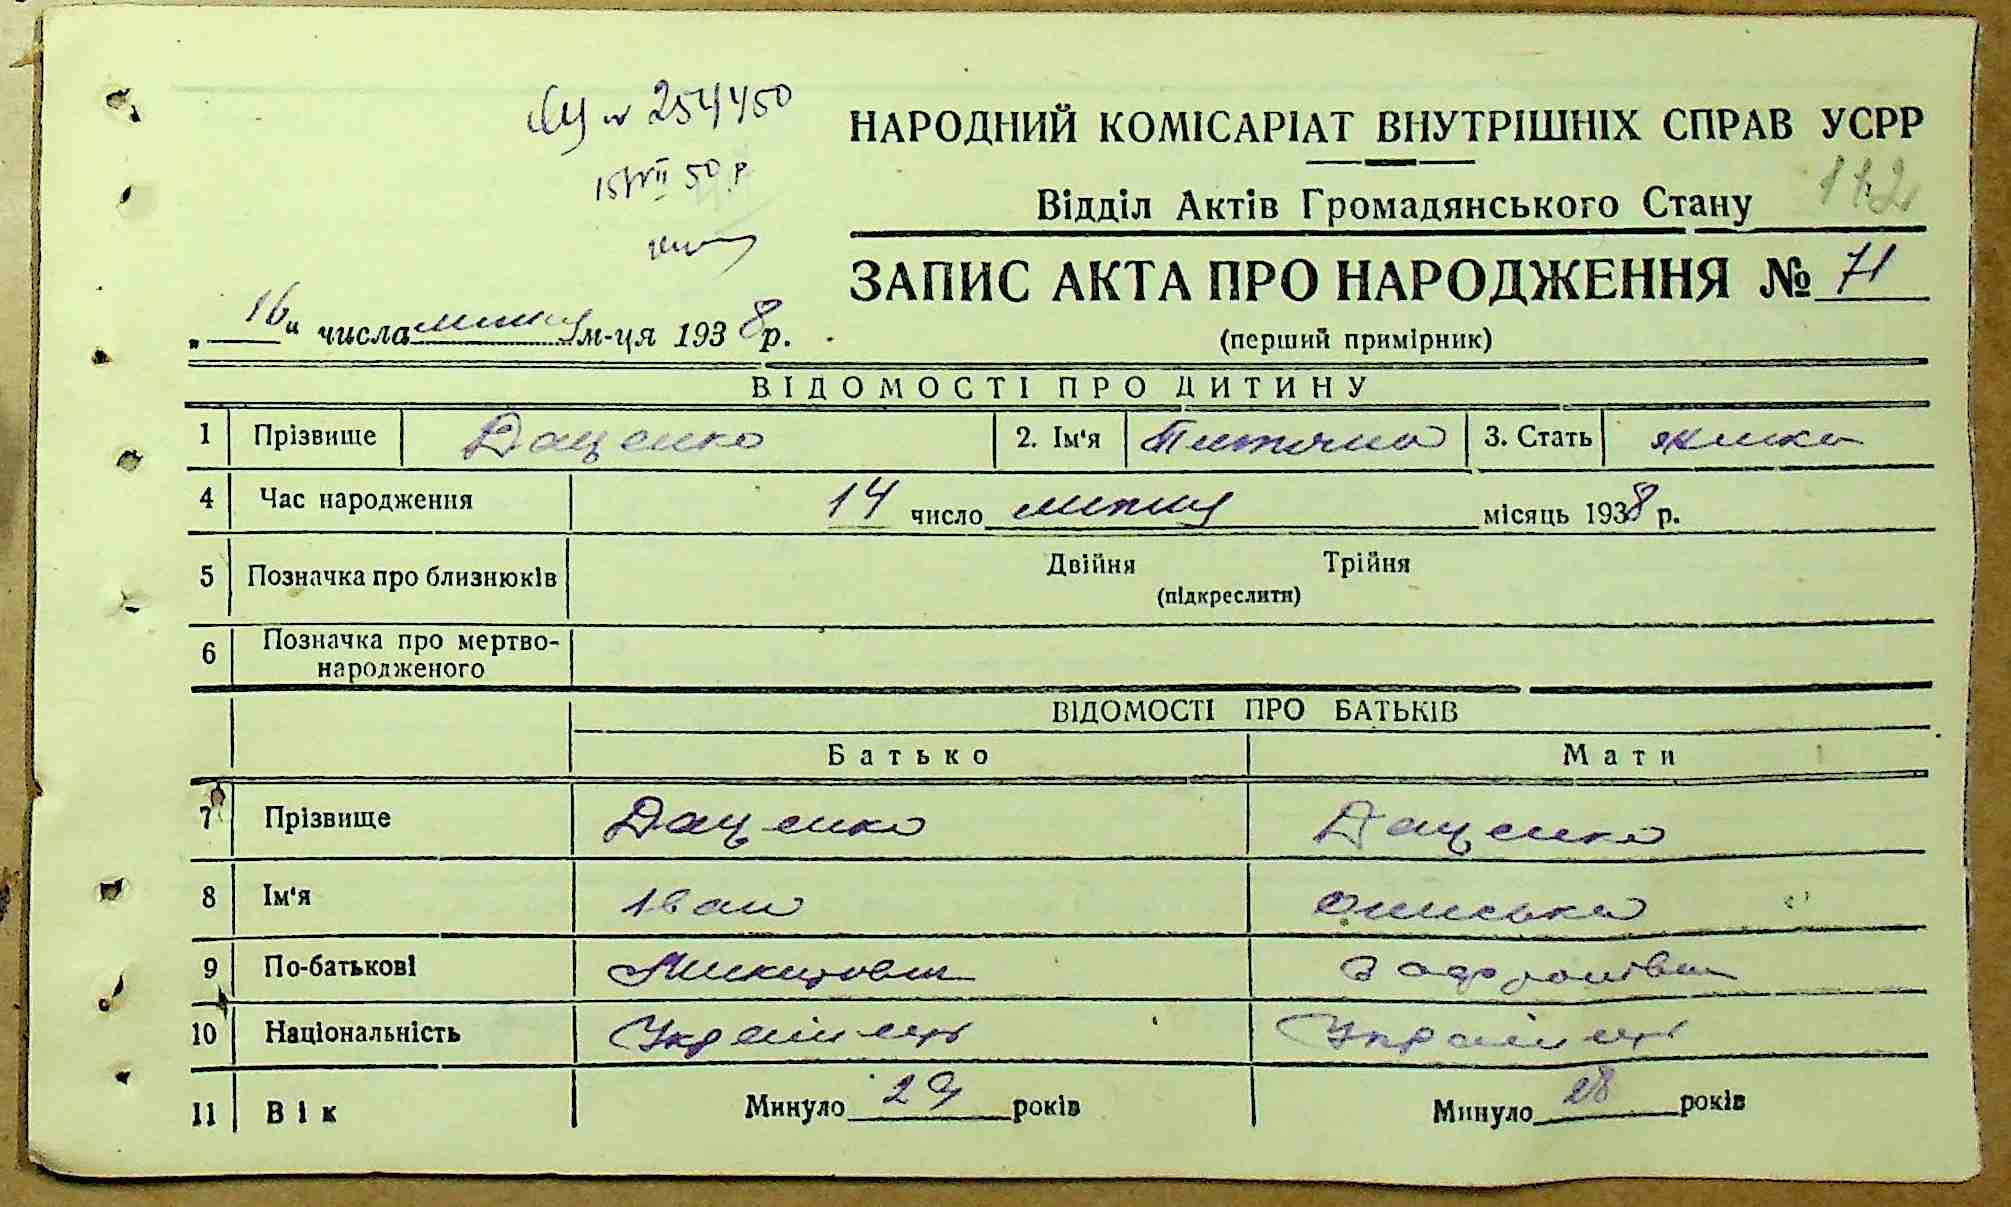 254450
50 р
НАРОДНИЙ КОМІСАРІАТ ВНУТРІШНІХ СПРАВ УСРР
112
Відділ Актів Громадянського Стану
ЗАПИС АКТА ПРО НАРОДЖЕННЯ № 71
(перший примірник)
„16“ числа липня м-ця 1938 р.
ВІДОМОСТІ ПРО ДИТИНУ
1 Прізвище Даценко 2. Ім'я Тетяна 3. Стать жінка
4 Час народження 14 число липня місяць 1938 р.
5 Позначка про близнюків Двійня Трійня
(підкреслити)
6 Позначка про мертво-
народженого
ВІДОМОСТІ ПРО БАТЬКІВ
Батько Мати
7 Прізвище Даценко Даценко
8 Ім'я Іван
9 По-батькові Микитович
10 Національність Українець Українець
11 Вік Минуло 29 років Минуло 28 років